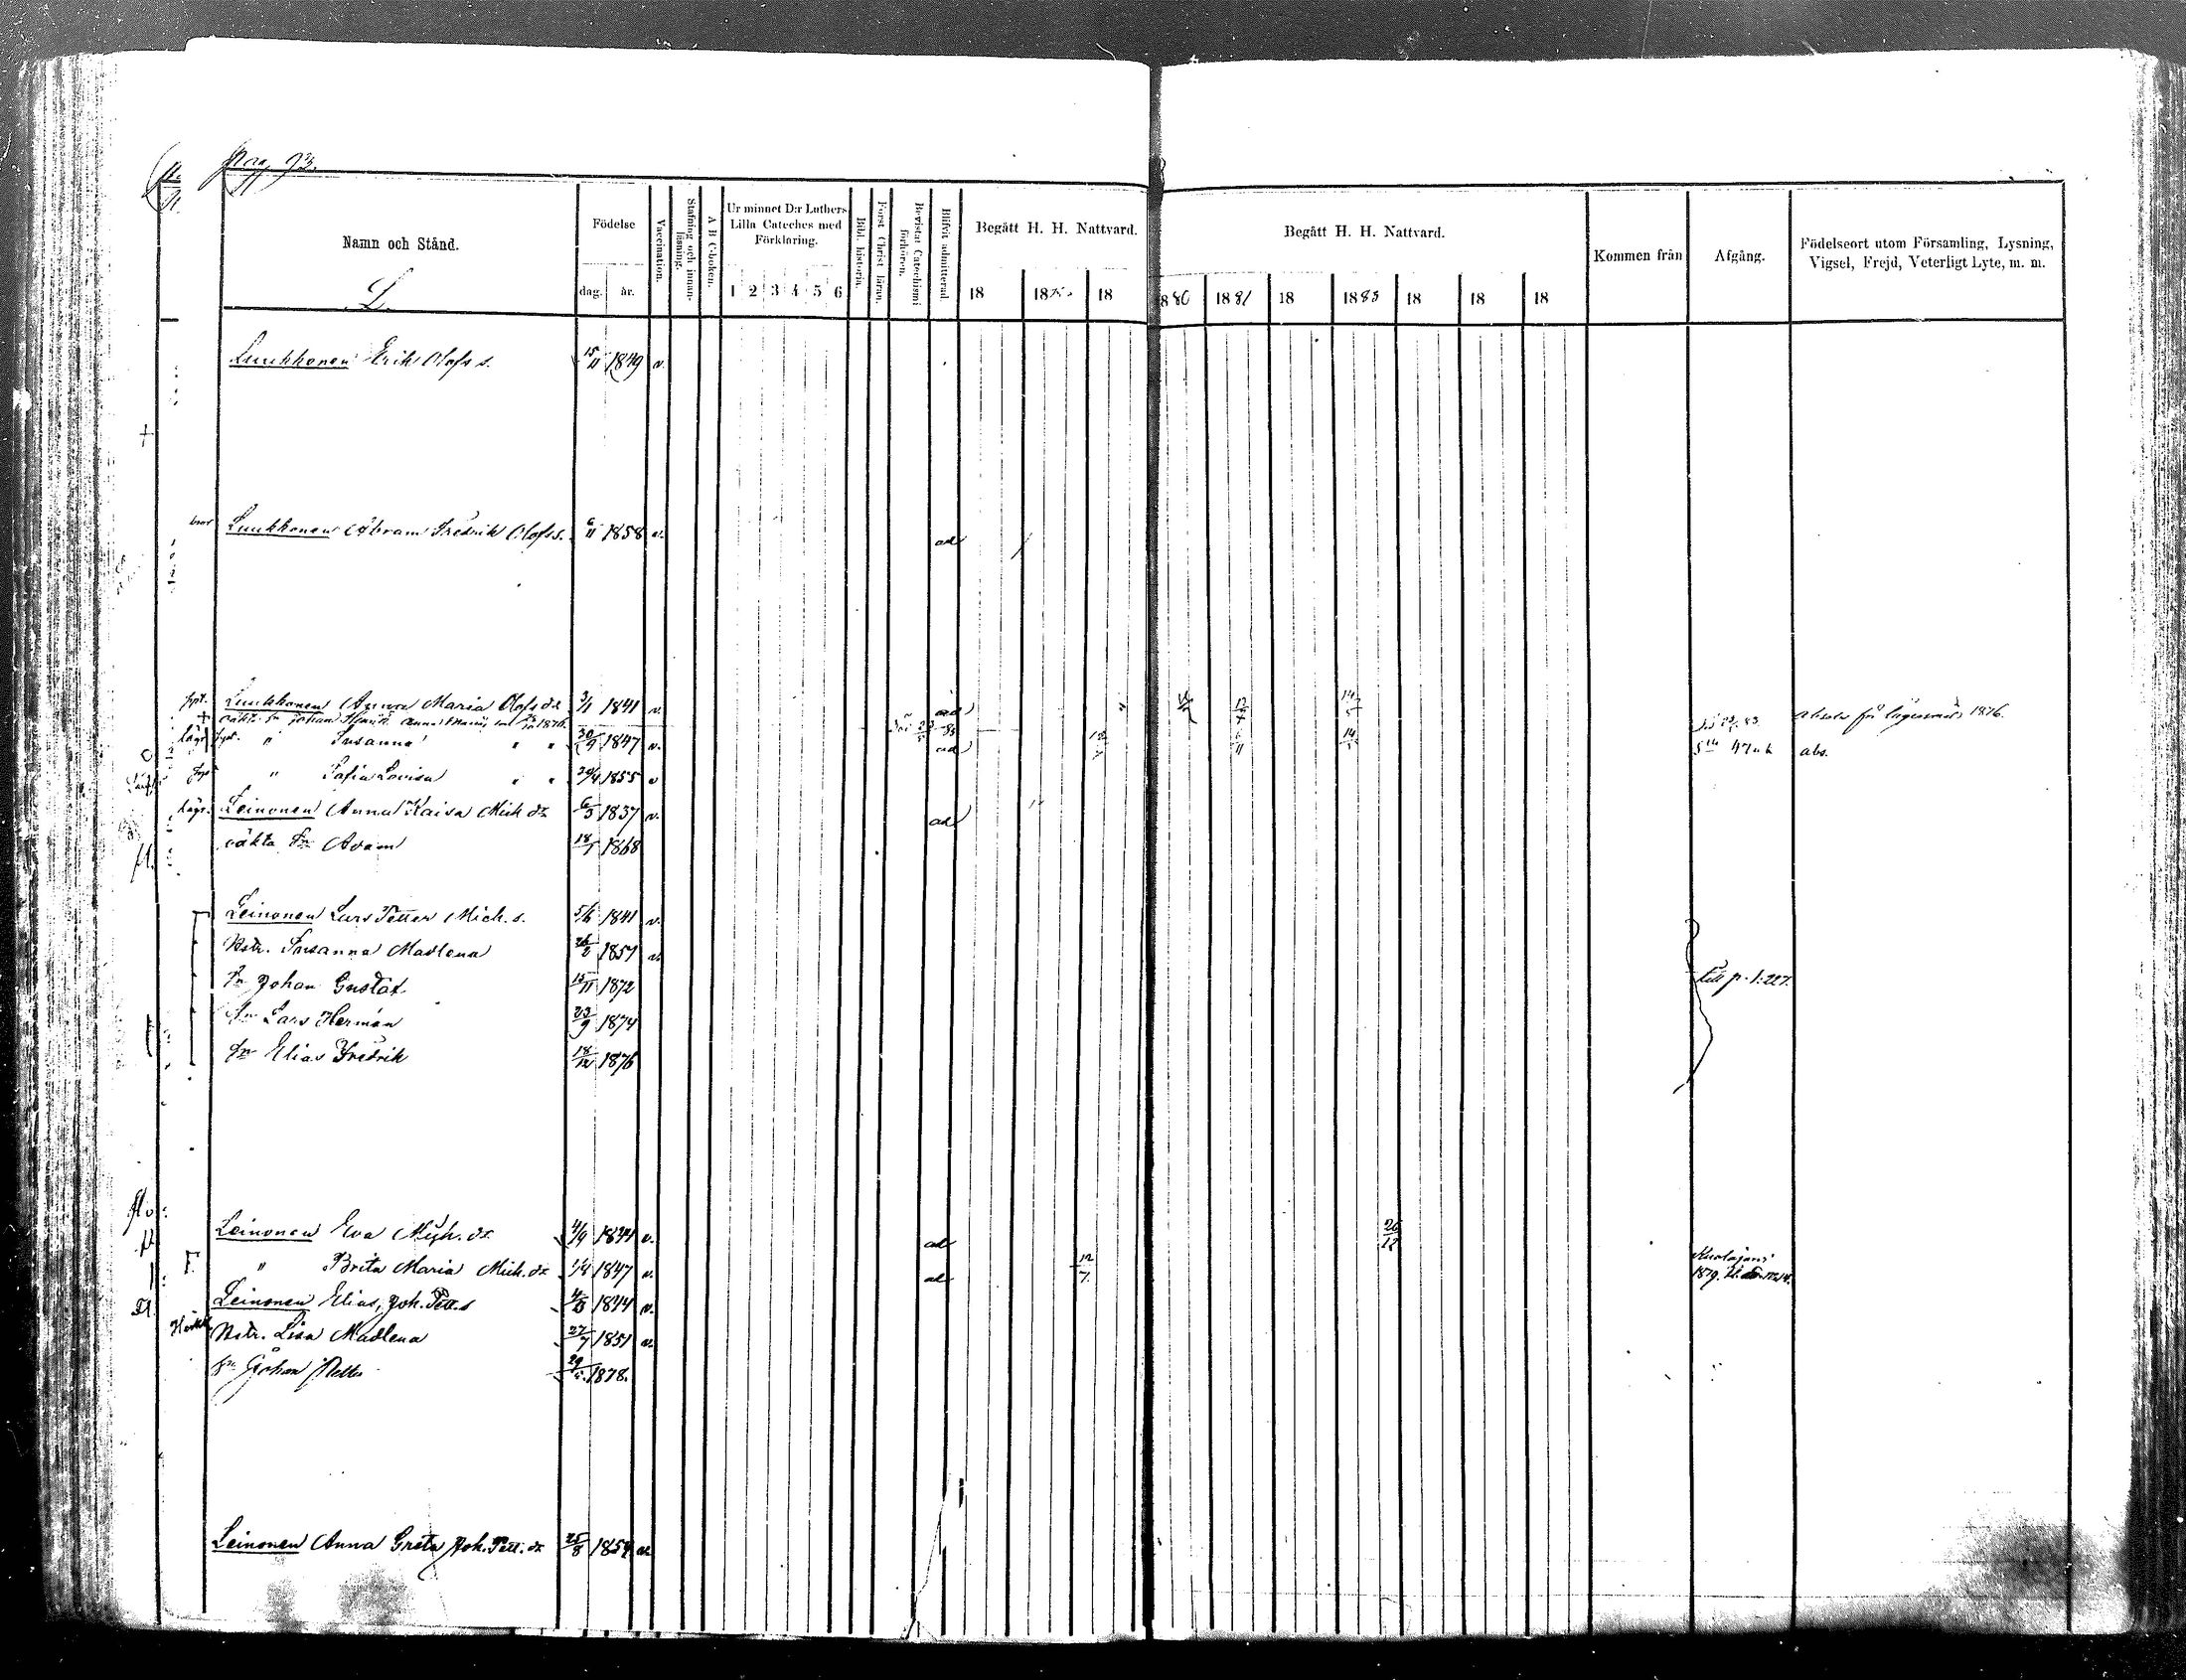 Pag. 93.
Namn och Stånd.
L.
Födelse
dag. år.
Vaccination.
Stafning och innan-läsning.
A B C-boken.
Ur minnet D:r Luthers Lilla Cateches med Förklaring.
1 2 3 4 5 6
Bibl. historia.
Först Christ läran.
Bevistat Catechismi förhören.
Blifvit admitterad.
Begått H. H. Nattvard.
18 18 18
Begått H. H. Nattvard.
1880 1881 18 1883 18 18 18
Kommen från
Afgång.
Födelseort utom Församling, Lysning, Vigsel, Frejd, Veterligt Lyte, m. m.
Luukkonen Erik Olofs s. 15/11 1849 v.
Luukkonen Abram Fredrik Olofs s. 6/11 1858 v. ad
Luukkonen Anna Maria Olofs dr 3/1 1841 v. ad 14/5 1876.
oäkta sn Johan Henrik
" Susanna " " 30/9 1847 v. ad 12/7 6/11 14/5 abs.
" Sofia Lovisa " " 1855 v
Leinonen Anna Kaisa Mich. dr 6/3 1837 v. ad
oäkta sn Adam 18/1 1868
Leinonen Lars Petter Mich. s. 5/6 1841 v.
Hstr. Susanna Madlena 26/2 1851 v.
sn Johan Gustaf 15/11 1872 till p. 1:227.
sn Lars Herman 23/9 1874
sn Elias Fredrik 18/12 1876
Leinonen Eva Mich. dr 4/9 1844 v. ad 26/12
" Brita Maria Mich. dr 1847 v. ad 12/7 1879.
Leinonen Elias, Joh. Pett. s 4/3 1844 v.
Hstr. Lisa Madlena 27/7 1851 v.
sn Johan Petter 29 1878.
Leinonen Anna Greta Joh. Pett. dr 25/8 1854 v.